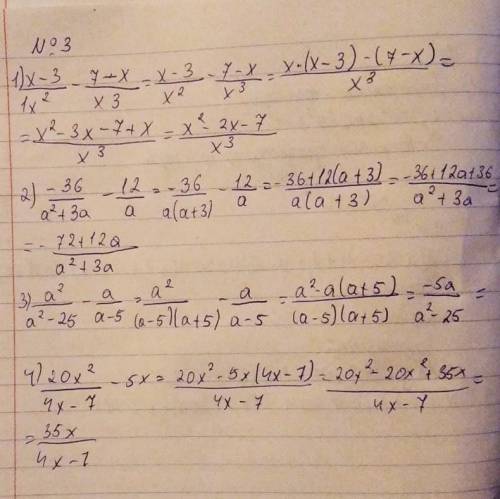 №3
1) x-3/1x² - 7-x/x3 = x-3/x² - 7-x/x³ = x·(x-3)-(7-x)/x³ =
= x²-3x-7+x/x³ = x²-2x-7/x³
2) -36/a²+3a - 12/a = -36/a(a+3) - 12/a = -36+12(a+3)/a(a+3) = -36+12a+36/a²+3a =
= - 72+12a/a²+3a
3) a²/a²-25 - a/a-5 = a²/(a-5)(a+5) - a/a-5 = a²-a(a+5)/(a-5)(a+5) = -5a/a²-25 =
4) 20x²/4x-7 - 5x = 20x²-5x(4x-7)/4x-7 = 20x²-20x²+35x/4x-7 =
= 35x/4x-7